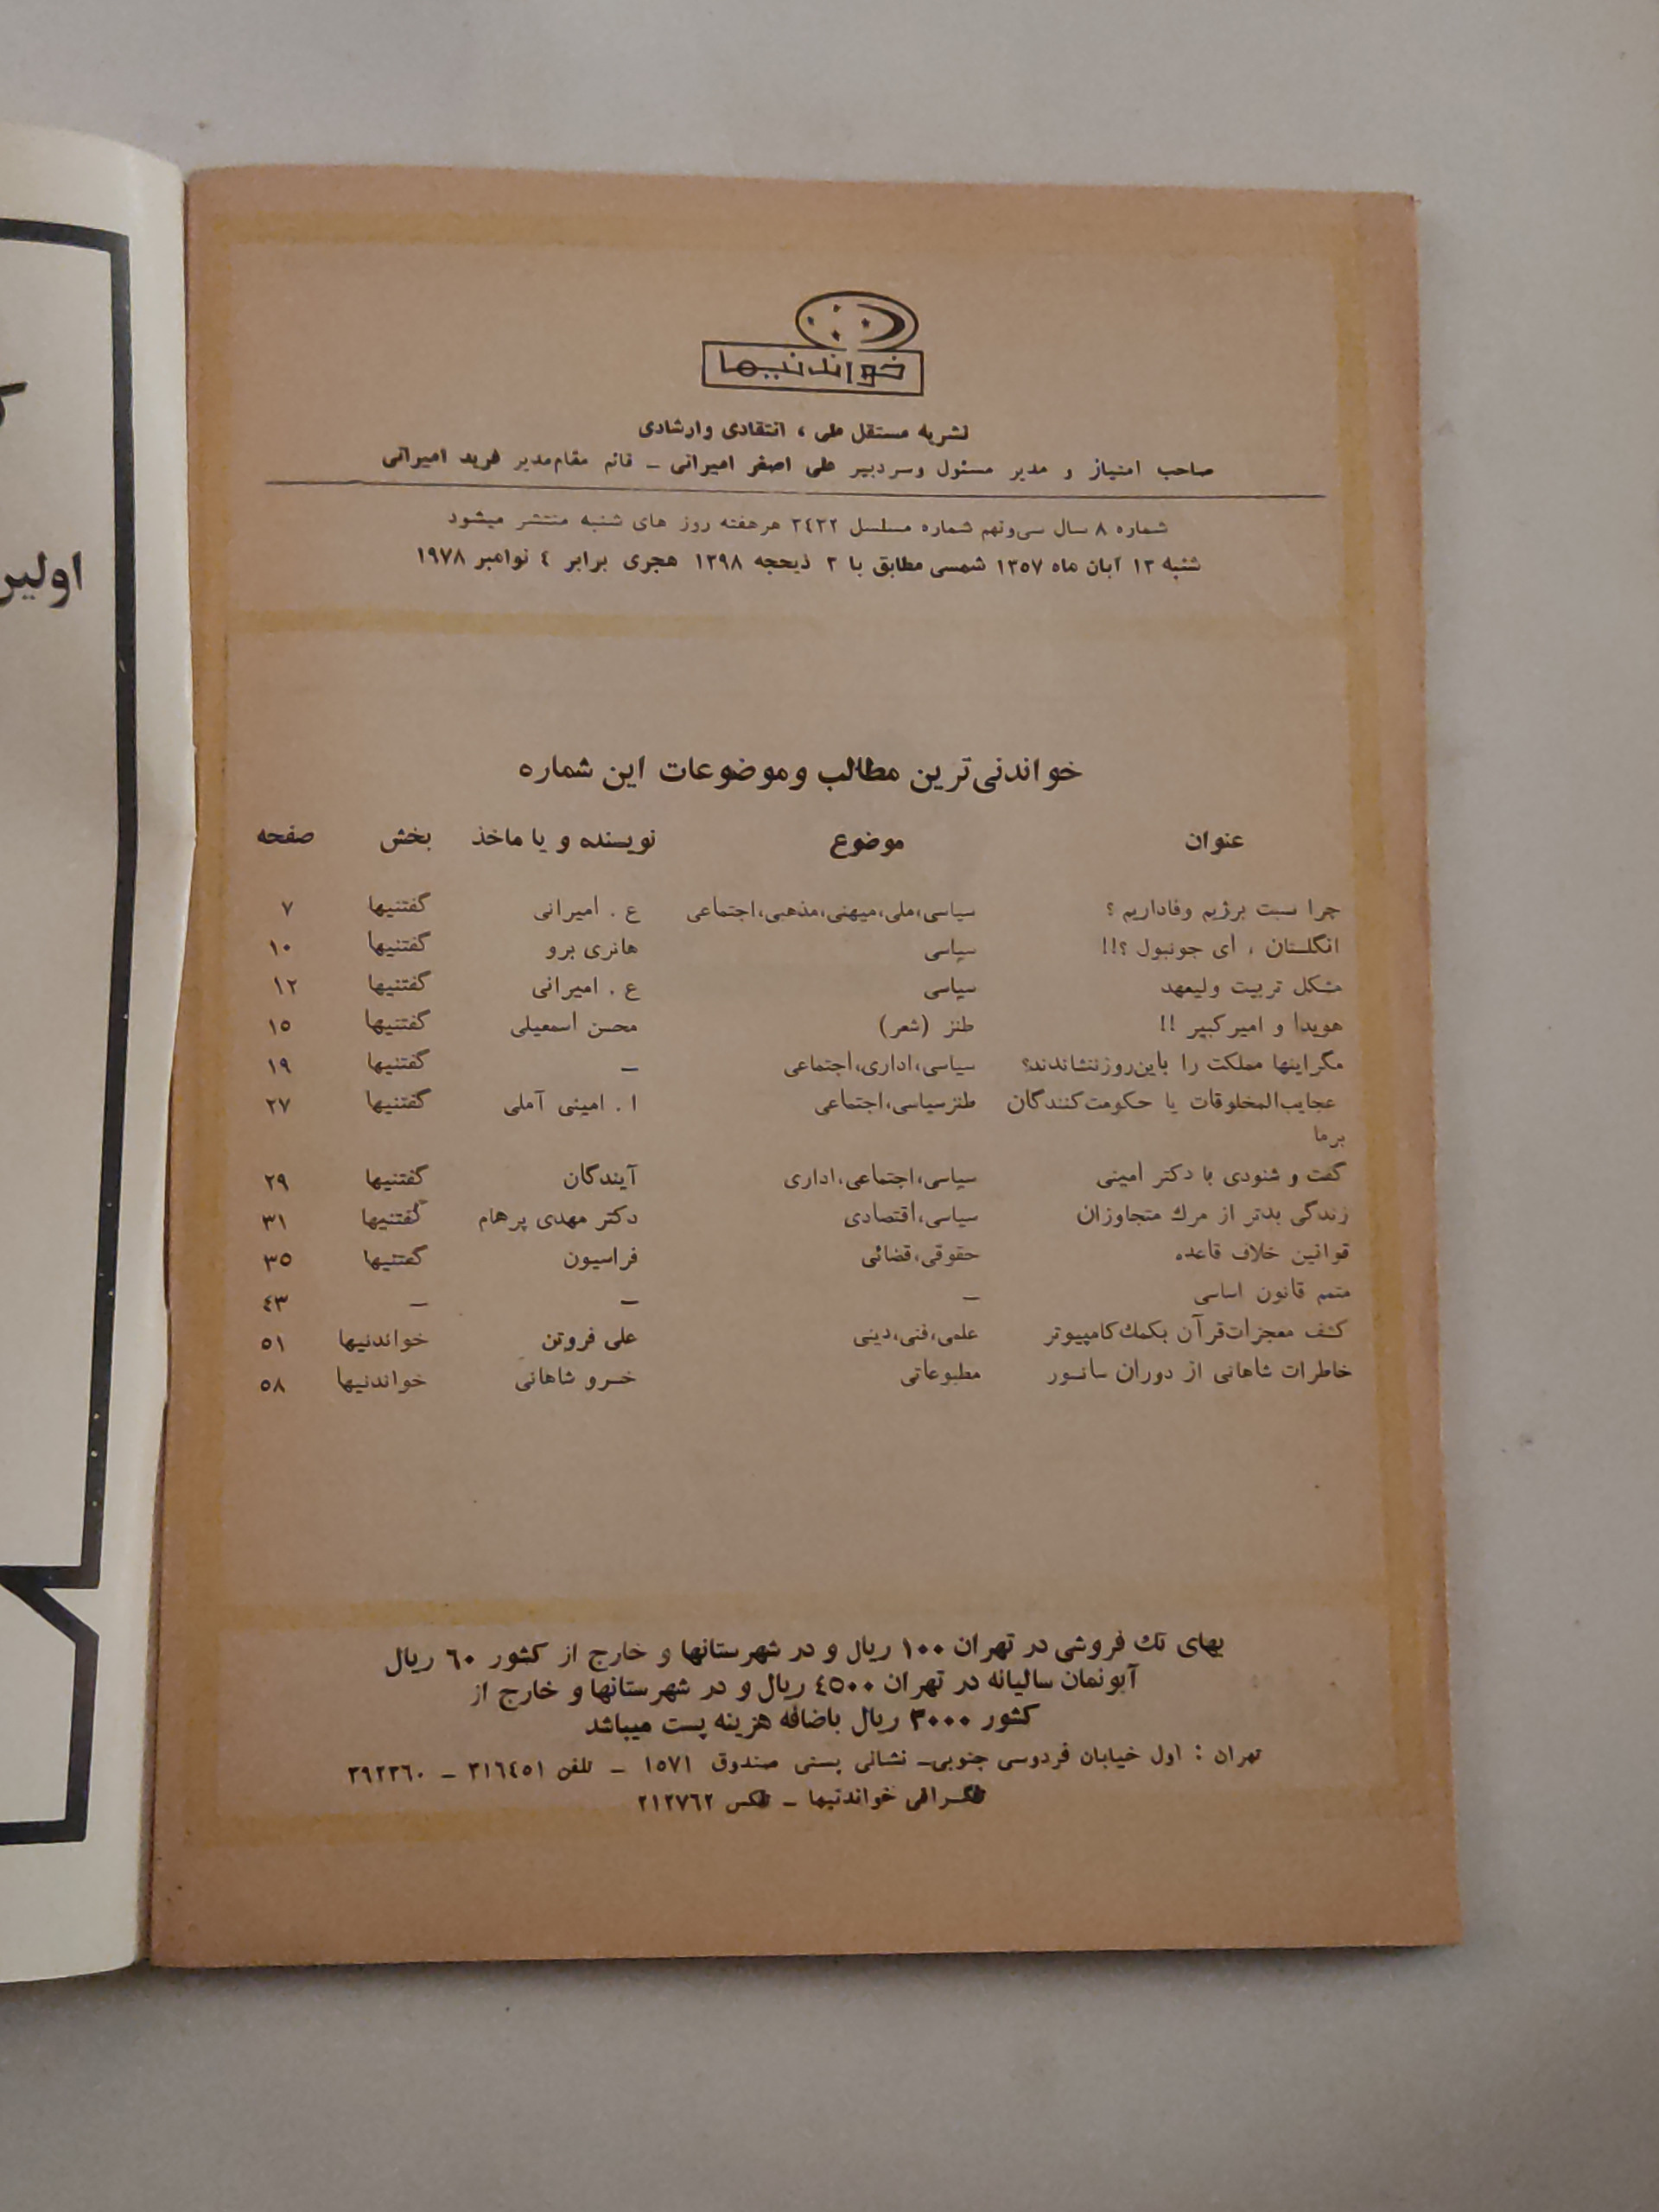 خواندنیها
نشریه مستقل ملی ، انتقادی وارشادی
صاحب امتیاز و مدیر مسئول وسردبیر علی اصغر امیرانی ــ قائم مقام‌مدیر فرید امیرانی
شماره ۸ سال سی‌ونهم شماره مسلسل ۳٤۳۲ هرهفته روز های شنبه منتشر میشود
شنبه ۱۳ آبان ماه ۱۳٥۷ شمسی مطابق با ۳ ذیحجه ۱۳۹۸ هجری برابر ٤ نوامبر ۱۹۷۸
خواندنی‌ترین مطالب وموضوعات این شماره
عنوان موضوع نویسنده و یا ماخذ بخش صفحه
چرا نسبت برژیم وفاداریم ؟ سیاسی،ملی،میهنی،مذهبی،اجتماعی ع . امیرانی گفتنیها ۷
انگلستان ، ای جونبول ؟!! سیاسی هانری برو گفتنیها ۱۰
مشکل تربیت ولیعهد سیاسی ع . امیرانی گفتنیها ۱۲
هویدا و امیرکبیر !! طنز (شعر) محسن اسمعیلی گفتنیها ۱٥
مگراینها مملکت را باین‌روزننشاندند؟ سیاسی،اداری،اجتماعی ــ گفتنیها ۱۹
عجایب‌المخلوقات یا حکومت‌کنندگان طنزسیاسی،اجتماعی ا . امینی آملی گفتنیها ۲۷
برما
گفت و شنودی با دکتر امینی سیاسی،اجتماعی،اداری آیندگان گفتنیها ۲۹
زندگی بدتر از مرك متجاوزان سیاسی،اقتصادی دکتر مهدی پرهام گفتنیها ۳۱
قوانین خلاف قاعده حقوقی،قضائی فراسیون گفتنیها ۳٥
متمم قانون اساسی ــ ــ ــ ٤۳
کشف معجزات‌قرآن بکمك‌کامپیوتر علمی،فنی،دینی علی فروتن خواندنیها ٥۱
خاطرات شاهانی از دوران سانسور مطبوعاتی خسرو شاهانی خواندنیها ٥۸
بهای تك فروشی در تهران ۱۰۰ ریال و در شهرستانها و خارج از کشور ٦۰ ریال
آبونمان سالیانه در تهران ٤٥۰۰ ریال و در شهرستانها و خارج از
کشور ۳۰۰۰ ریال باضافه هزینه پست میباشد
تهران : اول خیابان فردوسی جنوبی‌ــ نشانی پستی صندوق ۱٥۷۱ ــ تلفن ۳۱٦٤٥۱ ــ ۳۹۲۳٦۰
تلگرافی خواندنیها ــ تلکس ۲۱۲۷٦۲
اولین